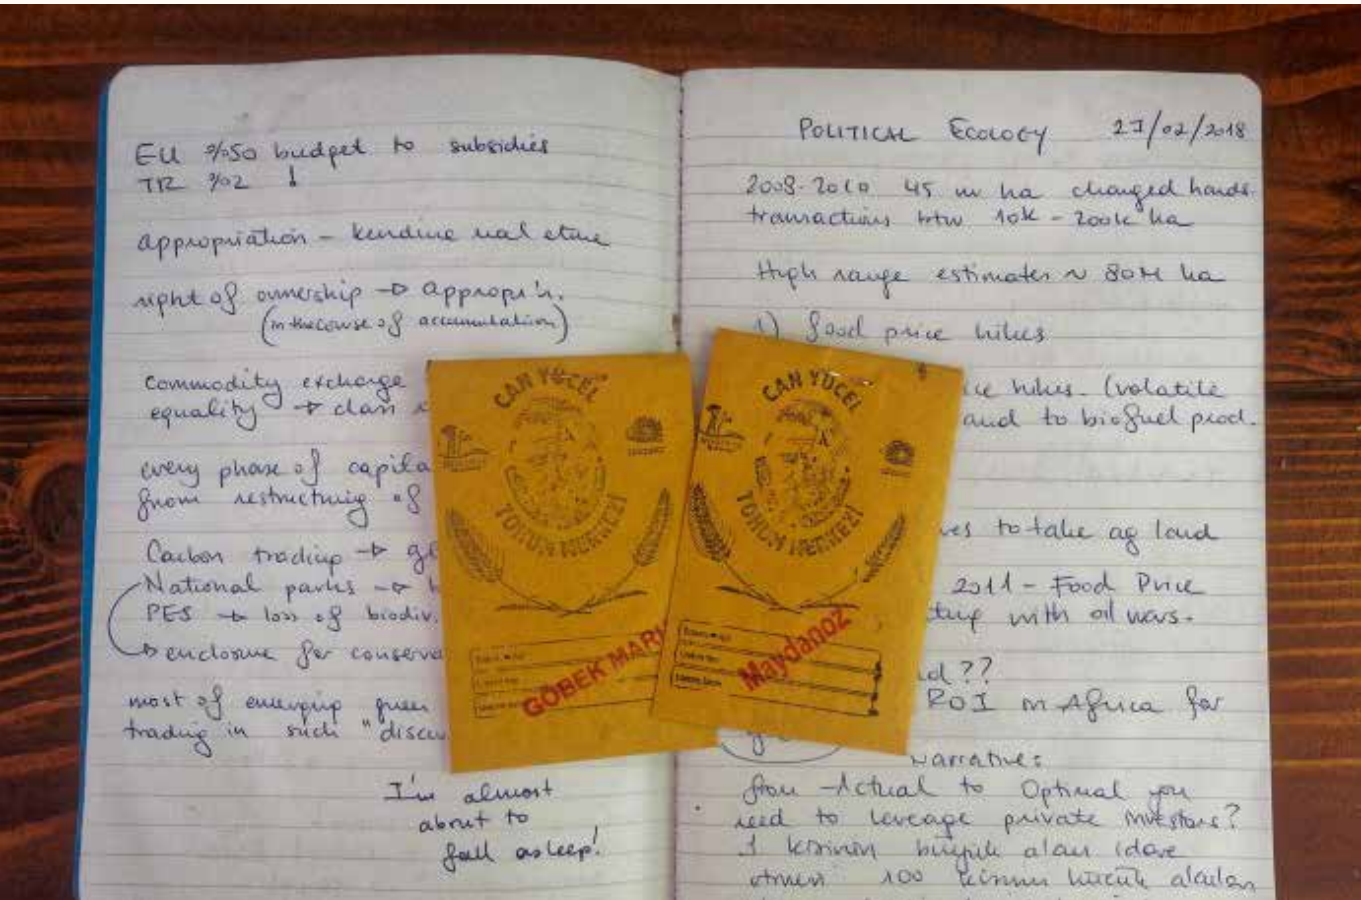 EU %50 budget to subsidies
TR %02 !
appropriation – kendine mal etme
right of ownership → appropr'n.
(in the course of accumulation)
commodity exchange
equality → class
every phase of capita
from restructuring of
Carbon trading →
National parks →
PES → loss of biodiv.
→ enclosure for conserva
most of emerging green
trading in such "discu
I'm almost
about to
fall asleep!
POLITICAL ECOLOGY 27/02/2018
2008-2010 45 m ha changed hands
transactions btw 10k – 200k ha
High range estimates ~ 80M ha
1) food price hikes
ce hikes. (volatile
and to biofuel prod.
ves to take ag land
2011 – Food Price
ting with oil wars.
d ??
ROI in Africa for
Narrative:
from Actual to Optimal you
need to leverage private investors?
1 kişinin büyük alan idare
etmesi 100 kişinin küçük alanları
CAN YÜCEL
TOHUM MERKEZİ
GÖBEK MARU
CAN YÜCEL
TOHUM MERKEZİ
Maydanoz